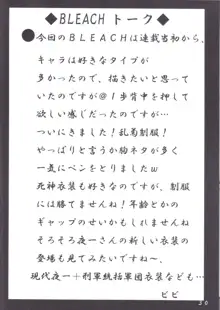 ◆BLEACHトーク◆
●今回のBLEACHは連載当初から、
キャラは好きなタイプが
多かったので、描きたいと思って
いたのですが@1歩背中を押して
欲しい感じだったのですが…
ついにきました!乱菊制服!
やっぱりと言うか胸ネタが多く
一気にペンをとりましたw
死神衣装も好きなのですが、制服
には勝てませんね!年齢とかの
ギャップのせいかもしれませんね
そろそろ夜一さんの新しい衣装の
登場も見てみたいですね〜、
現代夜一+刑軍統括軍団衣装なども…
ビビ
36